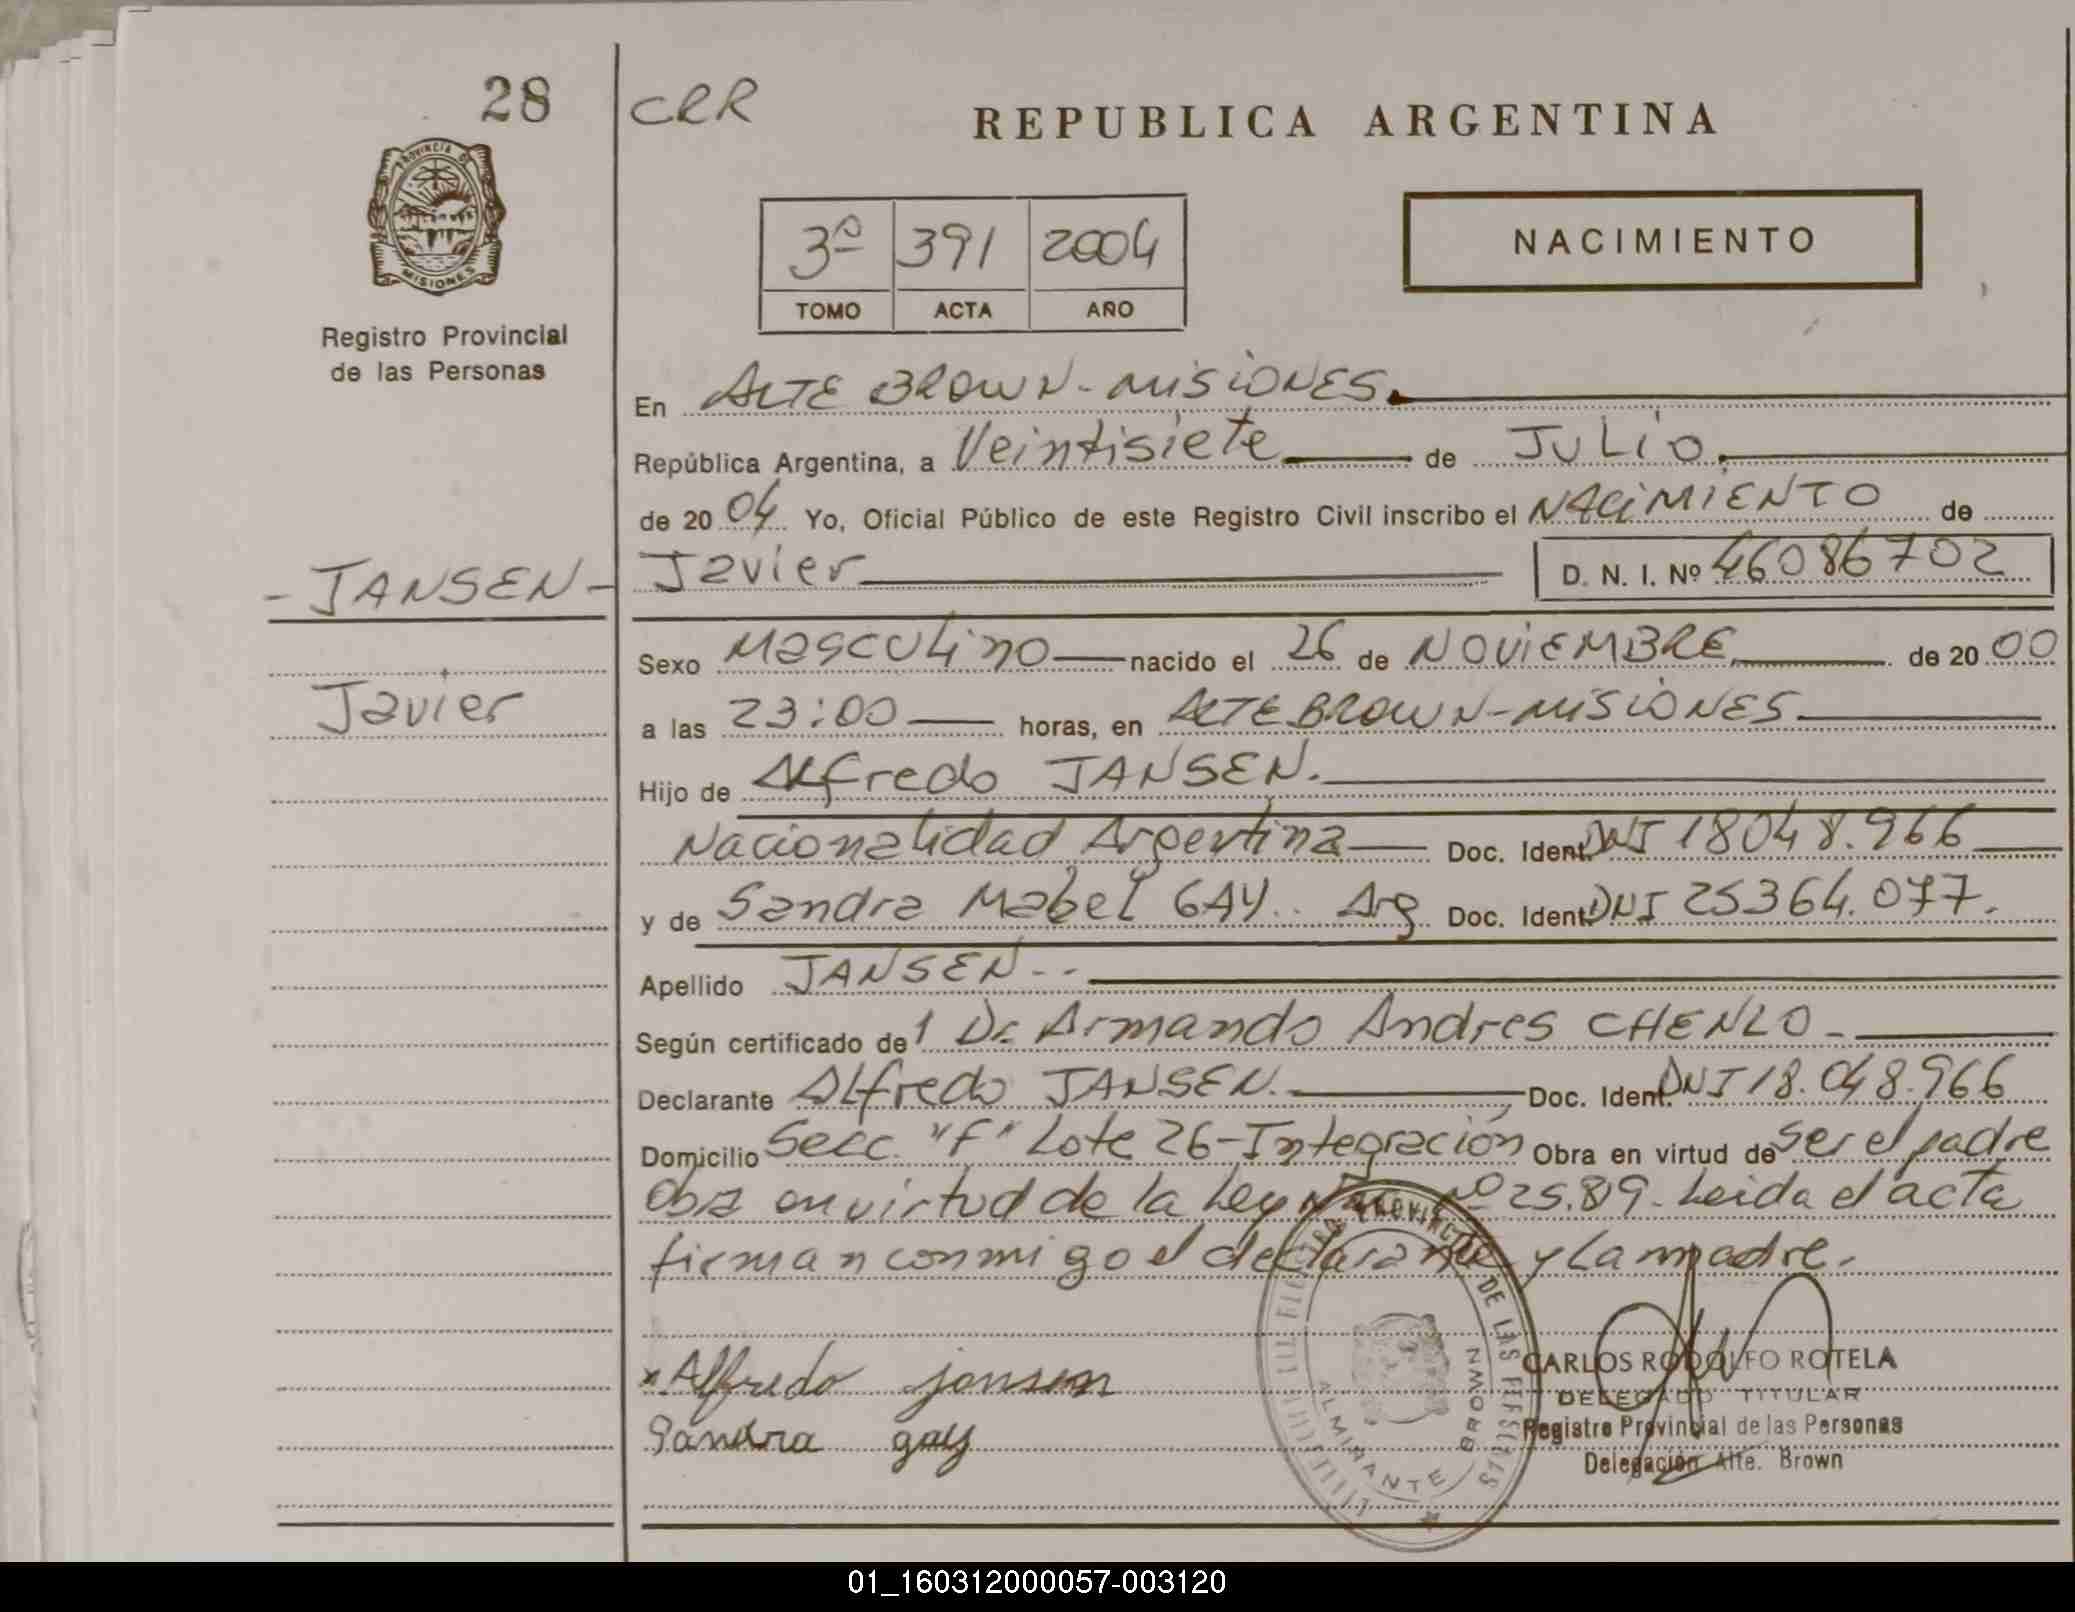 28
CRR
REPUBLICA ARGENTINA
PROVINCIA DE
MISIONES
Registro Provincial
de las Personas
3º 391 2004
TOMO ACTA AÑO
NACIMIENTO
En ALTE BROWN-MISIONES.
República Argentina, a Veintisiete de JULIO.
de 20 04 Yo, Oficial Público de este Registro Civil inscribo el NACIMIENTO de
-JANSEN-
Javier D. N. I. Nº 46086702
Sexo Masculino nacido el 26 de NOVIEMBRE de 20 00
Javier
a las 23:00 horas, en ALTE BROWN-MISIONES
Hijo de Alfredo JANSEN.
Nacionalidad Argentina Doc. Ident. DNI 18048.966
y de Sandra Mabel GAY.. Arg Doc. Ident. DNI 25364.077.
Apellido JANSEN--
Según certificado de 1 Dr. Armando Andres CHENLO-
Declarante Alfredo JANSEN. Doc. Ident. DNI 18.048.966
Domicilio Secc. "F" Lote 26-Integración Obra en virtud de ser el padre
Obra en virtud de la Ley Nº 25.819. Leida el acta
firman conmigo el declarante y la madre.
x Alfredo jansen
Sandra gay
PROVINCIAL DE LAS
ALMIRANTE BROWN
CARLOS RODOLFO ROTELA
DELEGADO TITULAR
Registro Provincial de las Personas
Delegación Alte. Brown
01_160312000057-003120